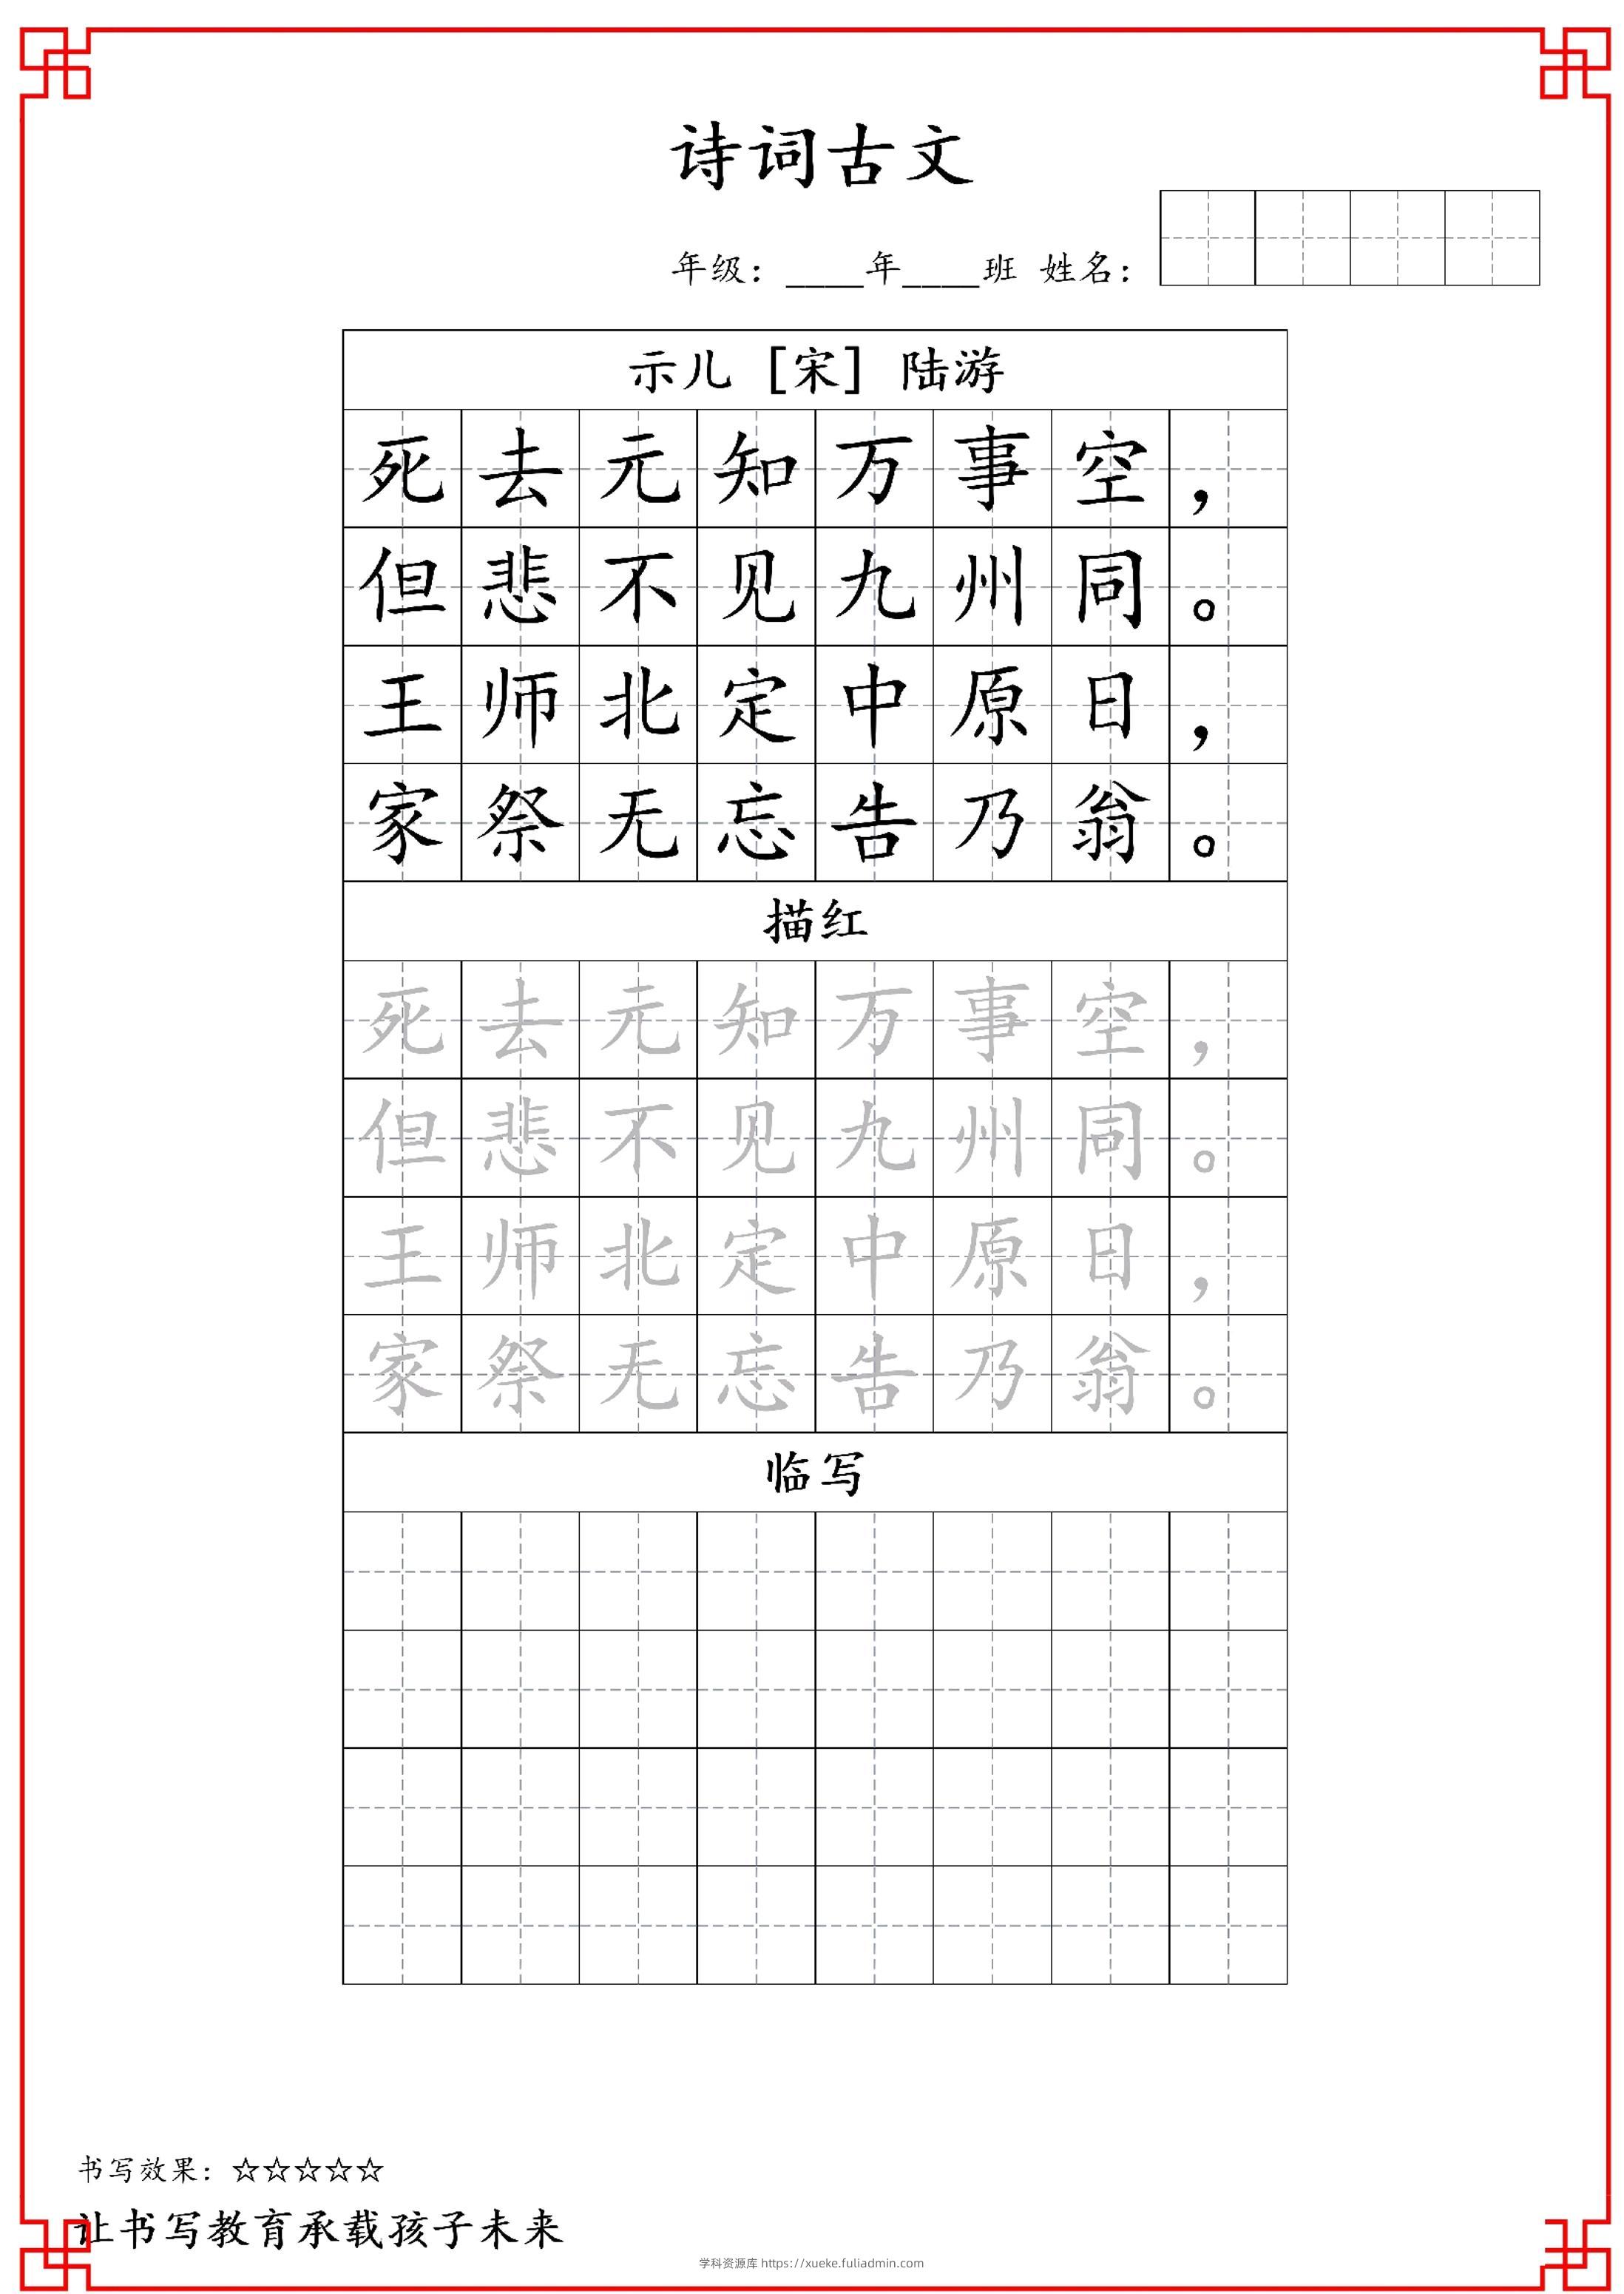 诗词古文
年级：____年____班 姓名：
示儿 [宋] 陆游
死去元知万事空，
但悲不见九州同。
王师北定中原日，
家祭无忘告乃翁。
描红
死去元知万事空，
但悲不见九州同。
王师北定中原日，
家祭无忘告乃翁。
临写
书写效果：☆☆☆☆☆
让书写教育承载孩子未来
学科资源库 https://xueke.fuliadmin.com